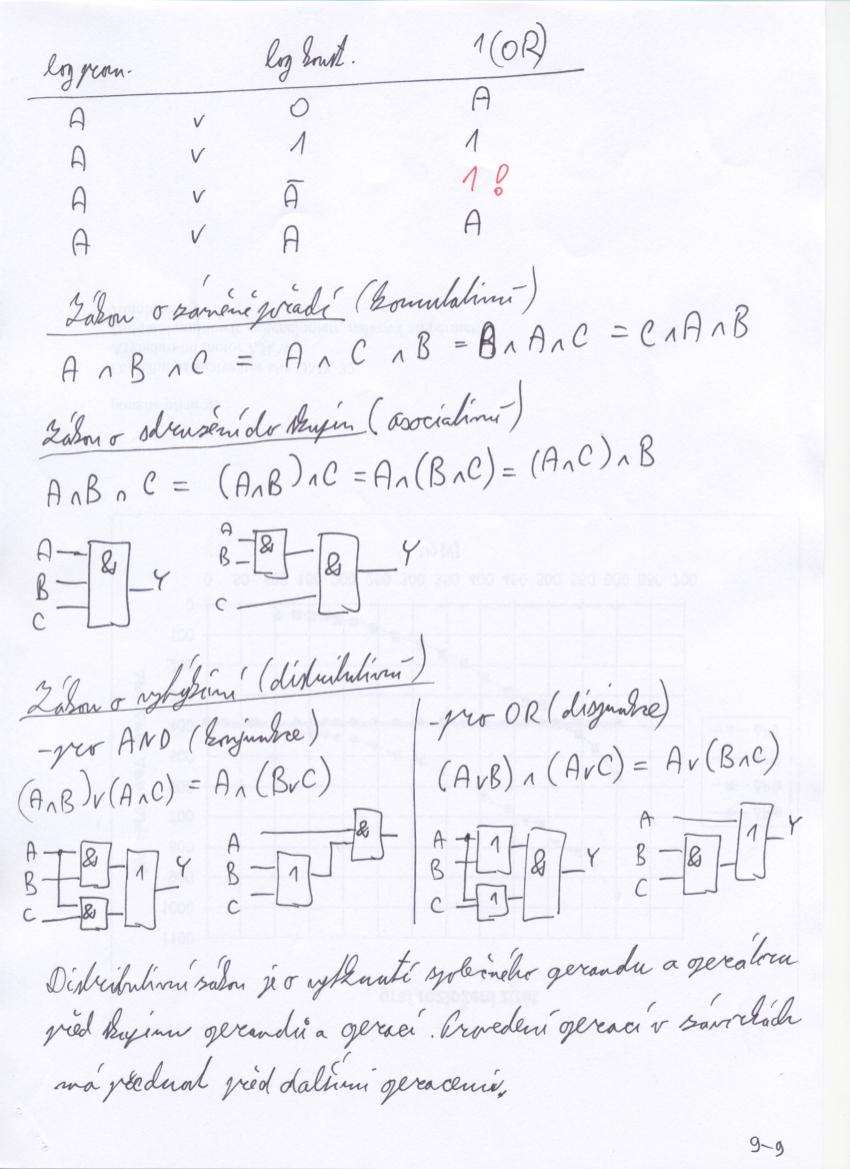 log prom. log konst. 1(OR)
A v 0 A
A v 1 1
A v Ā 1 !
A v A A
Zákon o záměně pořadí (komutativní)
A ∧ B ∧ C = A ∧ C ∧ B = B ∧ A ∧ C = C ∧ A ∧ B
Zákon o sdružení do skupin (asociativní)
A ∧ B ∧ C = (A∧B)∧C = A∧(B∧C) = (A∧C)∧B
A & Y
B
C
A & & Y
B
C
Zákon o vytýkání (distributivní)
-pro AND (konjunkce)
(A∧B)∨(A∧C) = A∧(B∨C)
A & 1 Y
B
C &
A &
B 1
C
-pro OR (disjunkce)
(A∨B)∧(A∨C) = A∨(B∧C)
A 1 & Y
B
C 1
A 1 Y
B &
C
Distributivní zákon je o vytknutí společného operandu a operátoru
před skupinu operandů a operací. Provedení operací v závorkách
má přednost před dalšími operacemi.
9-9